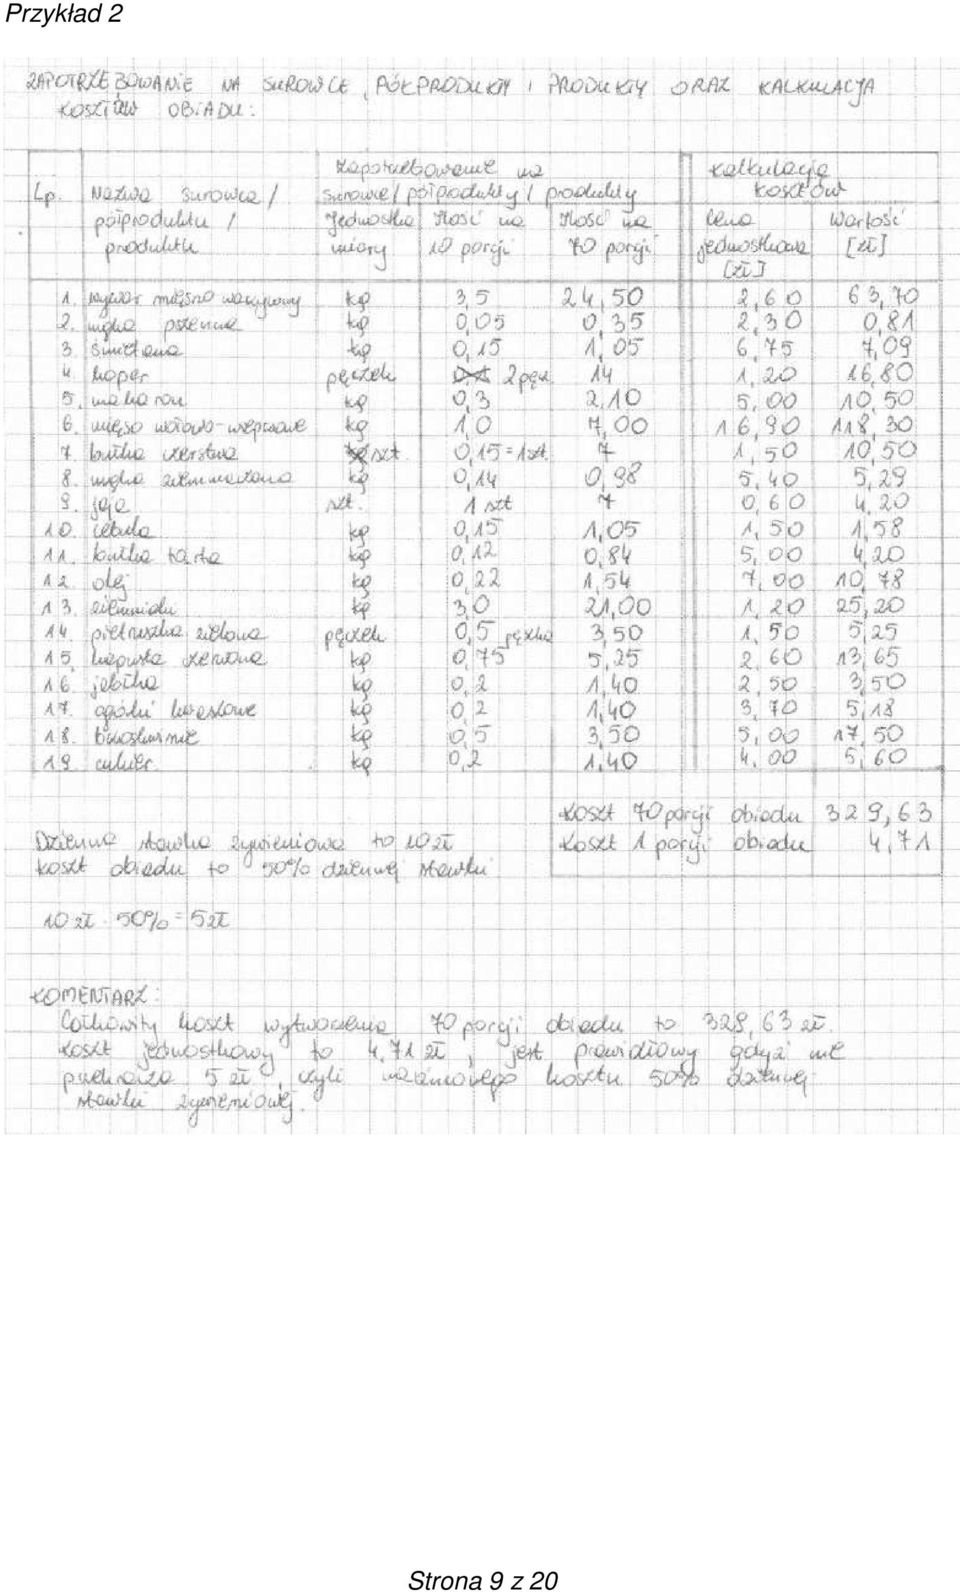 Przykład 2
ZAPOTRZEBOWANIE NA SUROWCE, PÓŁPRODUKTY I PRODUKTY ORAZ KALKULACJA
KOSZTÓW OBIADU:
Zapotrzebowanie na kalkulacja
Lp. Nazwa surowca / surowce / półprodukty / produkty kosztów
półproduktu / Jednostka Ilość na Ilość na Cena Wartość
produktu miary 10 porcji 70 porcji jednostkowa [zł]
[zł]
1. wywar mięsno warzywny kg 3,5 24,50 2,60 63,70
2. mąka pszenna kg 0,05 0,35 2,30 0,81
3. śmietana kg 0,15 1,05 6,75 7,09
4. koper pęczek 2 pęcz. 14 1,20 16,80
5. makaron kg 0,3 2,10 5,00 10,50
6. mięso wołowo-wieprzowe kg 1,0 7,00 16,90 118,30
7. bułka czerstwa szt. 0,15=1szt. 7 1,50 10,50
8. mąka ziemniaczana kg 0,14 0,98 5,40 5,29
9. jaja szt. 1 szt 7 0,60 4,20
10. cebula kg 0,15 1,05 1,50 1,58
11. bułka tarta kg 0,12 0,84 5,00 4,20
12. olej kg 0,22 1,54 7,00 10,78
13. ziemniaki kg 3,0 21,00 1,20 25,20
14. pietruszka zielona pęczek 0,5 pęczka 3,50 1,50 5,25
15. kapusta czerwona kg 0,75 5,25 2,60 13,65
16. jabłka kg 0,2 1,40 2,50 3,50
17. ogórki kwaszone kg 0,2 1,40 3,70 5,18
18. brzoskwinie kg 0,5 3,50 5,00 17,50
19. cukier kg 0,2 1,40 4,00 5,60
koszt 70 porcji obiadu 329,63
Dzienna stawka żywieniowa to 10 zł koszt 1 porcji obiadu 4,71
koszt obiadu to 50% dziennej stawki
10 zł · 50% = 5 zł
KOMENTARZ:
Całkowity koszt wytworzenia 70 porcji obiadu to 329,63 zł.
koszt jednostkowy to 4,71 zł, jest prawidłowy gdyż nie
przekracza 5 zł, czyli 50% dziennej
stawki żywieniowej.
Strona 9 z 20